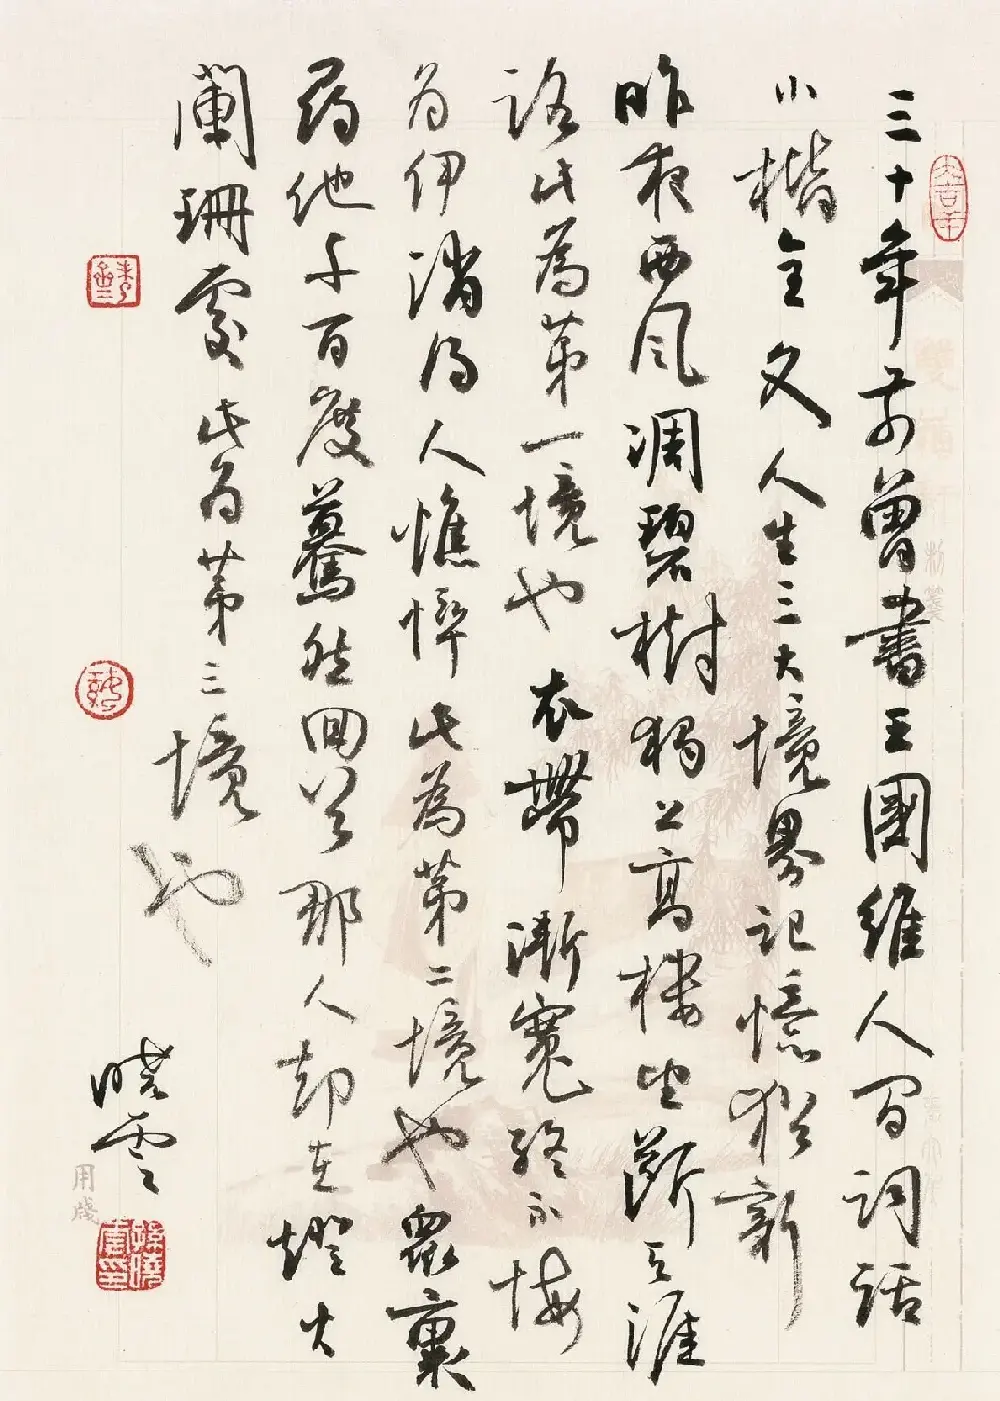 三十年前曾書王國維人间詞話
小楷全文人生三大境界記憶猶新
昨夜西风凋碧樹獨上高樓望斷天涯
路此為第一境也 衣帶漸寬終不悔
为伊消得人憔悴此為第二境也眾裏
尋他千百度驀然回首那人却在燈火
闌珊處此为第三境也
曉雲
用箋
孫曉雲印